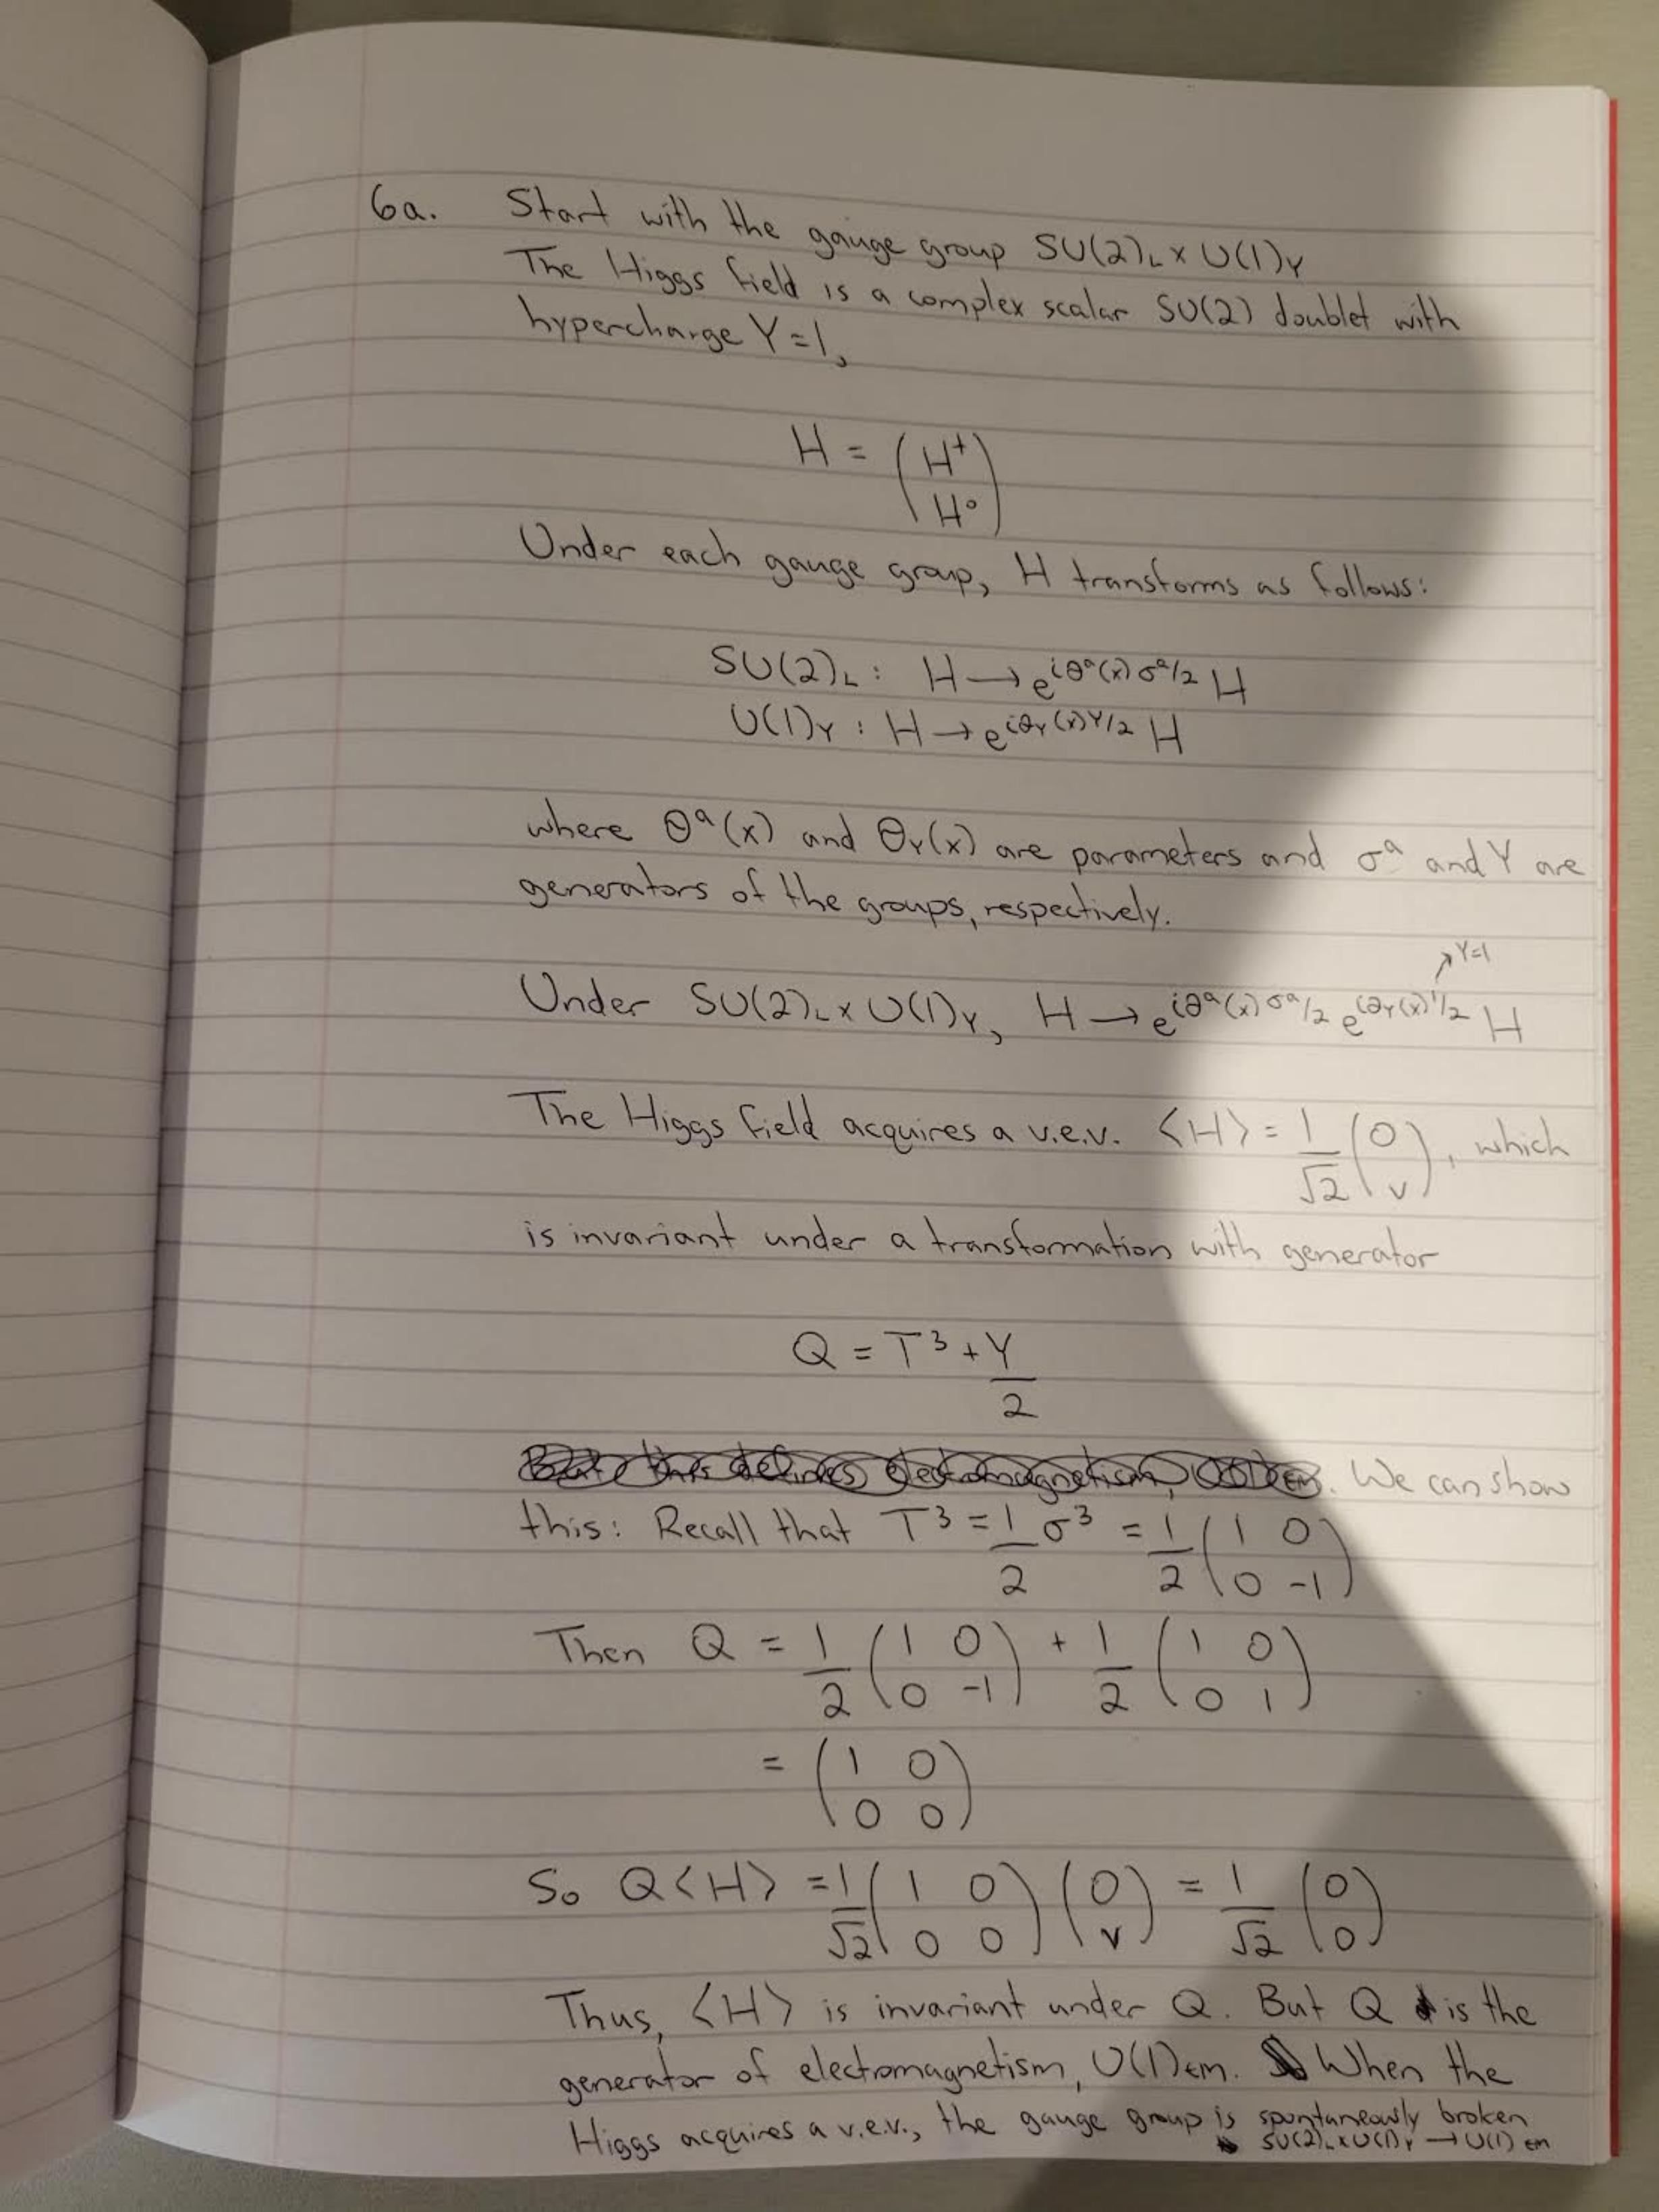 6a. Start with the gauge group SU(2)_L x U(1)_Y
The Higgs field is a complex scalar SU(2) doublet with
hypercharge Y=1,
H = (H⁺
H⁰)
Under each gauge group, H transforms as follows:
SU(2)_L : H → e^{iθ^a(x)σ^a/2} H
U(1)_Y : H → e^{iθ_Y(x)Y/2} H
where θ^a(x) and θ_Y(x) are parameters and σ^a and Y are
generators of the groups, respectively.
↗Y=1
Under SU(2)_L x U(1)_Y, H → e^{iθ^a(x)σ^a/2} e^{iθ_Y(x)1/2} H
The Higgs field acquires a v.e.v. <H> = 1/√2 (0 v), which
is invariant under a transformation with generator
Q = T³ + Y/2
We can show
this: Recall that T³ = 1/2 σ³ = 1/2 (1 0 0 -1)
Then Q = 1/2 (1 0 0 -1) + 1/2 (1 0 0 1)
= (1 0 0 0)
So Q<H> = 1/√2 (1 0 0 0) (0 v) = 1/√2 (0 0)
Thus, <H> is invariant under Q. But Q is the
generator of electromagnetism, U(1)_EM. When the
Higgs acquires a v.e.v., the gauge group is spontaneously broken
SU(2)_L x U(1)_Y → U(1)_EM